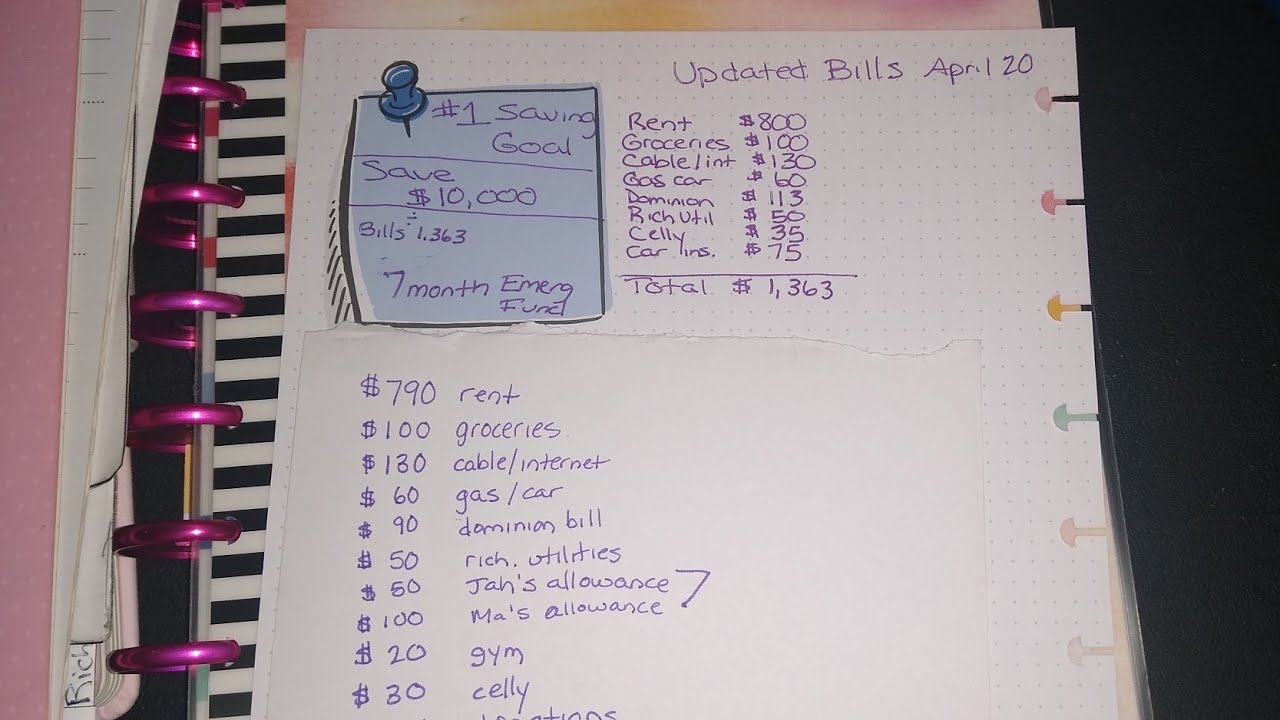 Updated Bills April 20
#1 Saving
Goal
Save
$10,000
÷
Bills 1,363
7 month Emerg
Fund
Rent $800
Groceries $100
Cable/int $130
Gas car $ 60
Dominion $ 113
Rich Util $ 50
Celly $ 35
Car Ins. $ 75
Total $ 1,363
$790 rent
$100 groceries
$130 cable/internet
$ 60 gas/car
$ 90 dominion bill
$ 50 rich. utilities
$ 50 Jah's allowance
$100 Ma's allowance
$ 20 gym
$ 30 celly
Rich